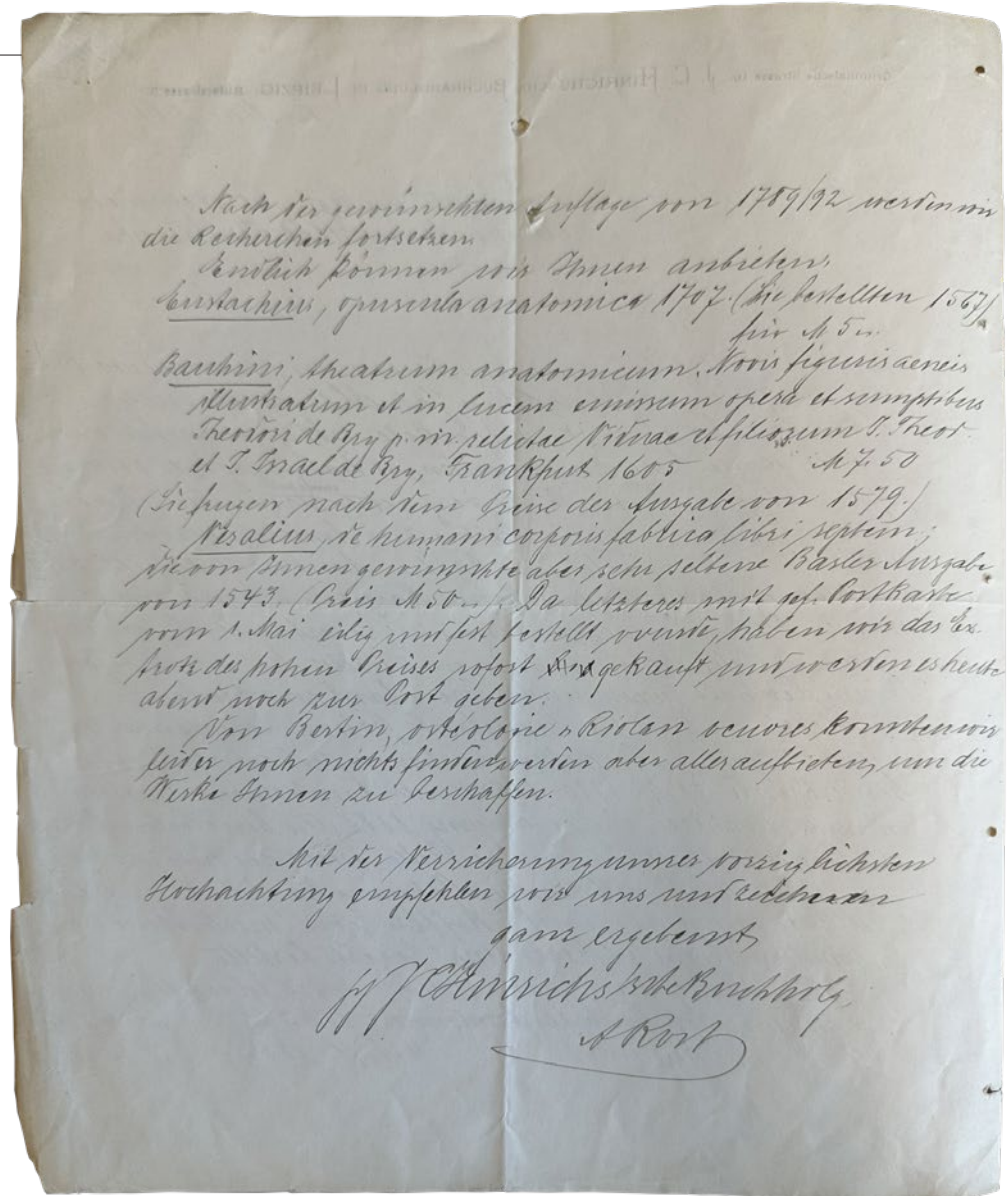 Nach der gewünschten Auflage von 1789/92 werden wir
die Recherchen fortsetzen.
Endlich können wir Ihnen anbieten.
Eustachius, opuscula anatomica 1707. (Sie bestellten 1567)
für M 5.–.
Bauhini, theatrum anatomicum. Novis figuris aeneis
illustratum et in lucem emissum opera et sumptibus
Theodori de Bry p. m. relictae Viduae et filiorum J. Theod.
et J. Israel de Bry, Frankfurt 1605 M 7.50
(Sie frugen nach dem Preise der Ausgabe von 1579.)
Vesalius, de humani corporis fabrica libri septem;
die von Ihnen gewünschte aber sehr seltene Basler Ausgabe
von 1543. (Preis M 50.–.) Da letzteres mit gef. Postkarte
vom 1. Mai eilig und fest bestellt wurde, haben wir das Ex.
trotz des hohen Preises sofort gekauft und werden es heute
abend noch zur Post geben.
Von Bertin, ostéologie u. Riolan oeuvres konnten wir
leider noch nichts finden, werden aber alles aufbieten, um die
Werke Ihnen zu beschaffen.
Mit der Versicherung unsrer vorzüglichsten
Hochachtung empfehlen wir uns und zeichnen
ganz ergebenst
J C Hinrichs'sche Buchhdlg.
A Rost